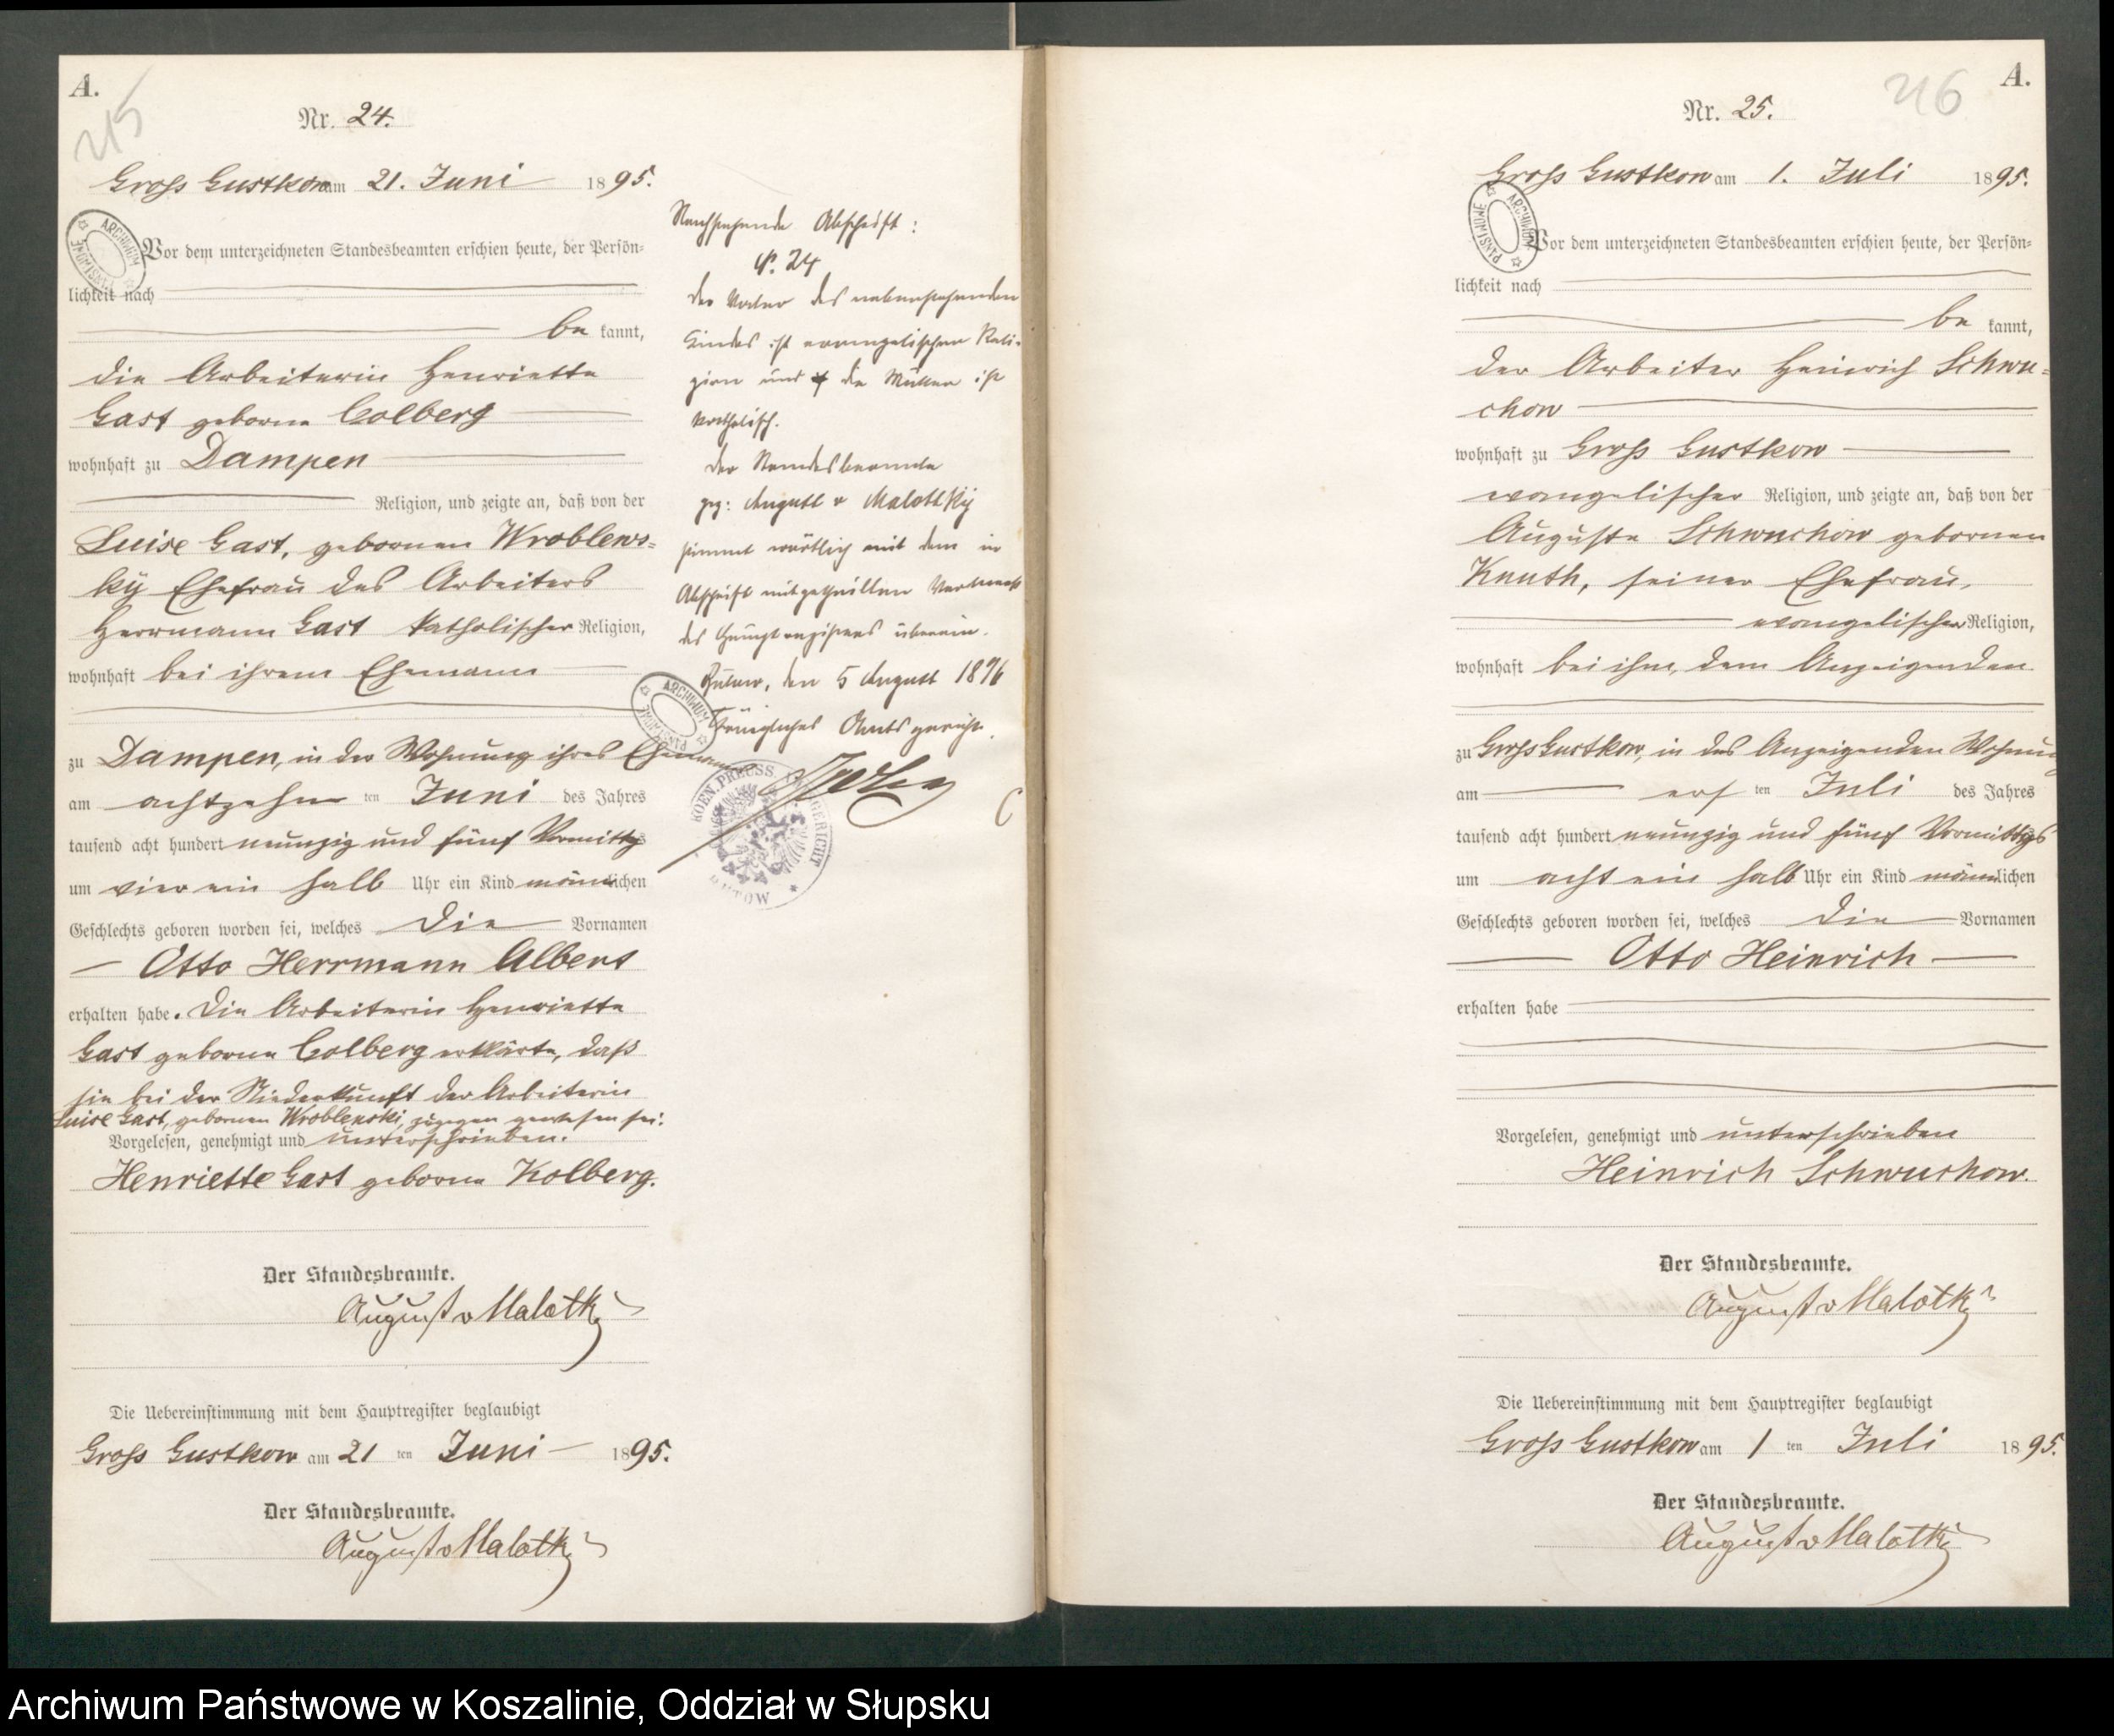 A.
215
Nr. 24.
Gross Gustkow am 21. Juni 1895.
Vor dem unterzeichneten Standesbeamten erschien heute, der Persön-
lichkeit nach
be kannt,
die Arbeiterin Henriette
Gast geborne Colberg
wohnhaft zu Dampen
Religion, und zeigte an, daß von der
Luise Gast, gebornen Wroblews-
ky Ehefrau des Arbeiters
Herrmann Gast katholischer Religion,
wohnhaft bei ihrem Ehemann
zu Dampen, in der Wohnung ihres Ehemannes
am achtzehn ten Juni des Jahres
tausend acht hundert neunzig und fünf Vormittgs
um vier ein halb Uhr ein Kind männlichen
Geschlechts geboren worden sei, welches die Vornamen
Otto Herrmann Albert
erhalten habe. Die Arbeiterin Henriette
Gast geborne Colberg erklärte, daß
sie bei der Niederkunft der Arbeiterin
Luise Gast, gebornen Wroblewski, zugegen gewesen sei.
Vorgelesen, genehmigt und unterschrieben.
Henriette Gast geborne Kolberg.
Der Standesbeamte.
August v Malotky
Die Uebereinstimmung mit dem Hauptregister beglaubigt
Gross Gustkow am 21 ten Juni 1895.
Der Standesbeamte.
August v Malotky
Nachstehende Abschrift:
N. 24
Der Vater des nebenstehenden
Kindes ist evangelischer Reli-
gion und die Mutter ist
katholisch.
Der Standesbeamte
gez: August v Malottky
stimmt wörtlich mit dem in
Abschrift mitgetheilten Vermerk
des Hauptregisters überein.
Bütow, den 5 August 1896
Königliches Amtsgericht.
KOEN. PREUSS. AMTSGERICHT
BÜTOW
ARCHIWUM PAŃSTWOWE
ARCHIWUM PAŃSTWOWE
A.
216
Nr. 25.
Gross Gustkow am 1. Juli 1895.
ARCHIWUM PAŃSTWOWE
Vor dem unterzeichneten Standesbeamten erschien heute, der Persön-
lichkeit nach
be kannt,
der Arbeiter Heinrich Schwu-
chow
wohnhaft zu Gross Gustkow
evangelischer Religion, und zeigte an, daß von der
Auguste Schwuchow gebornen
Knuth, seiner Ehefrau,
evangelischer Religion,
wohnhaft bei ihm, dem Anzeigenden
zu Gross Gustkow, in des Anzeigenden Wohnung
am ers ten Juli des Jahres
tausend acht hundert neunzig und fünf Vormittgs
um acht ein halb Uhr ein Kind männlichen
Geschlechts geboren worden sei, welches die Vornamen
Otto Heinrich
erhalten habe
Vorgelesen, genehmigt und unterschrieben
Heinrich Schwuchow.
Der Standesbeamte.
August v Malotky
Die Uebereinstimmung mit dem Hauptregister beglaubigt
Gross Gustkow am 1 ten Juli 1895.
Der Standesbeamte.
August v Malotky
Archiwum Państwowe w Koszalinie, Oddział w Słupsku